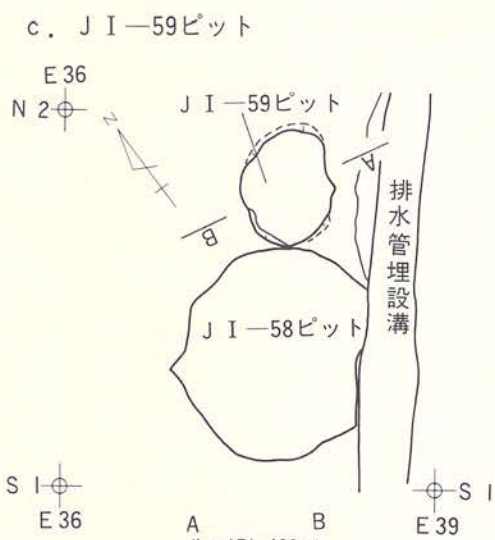 c. J I—59ピット
E 36
N 2
J I—59ピット
N
A
B
排水管埋設溝
J I—58ピット
S I
S I
E 36
A
B
E 39